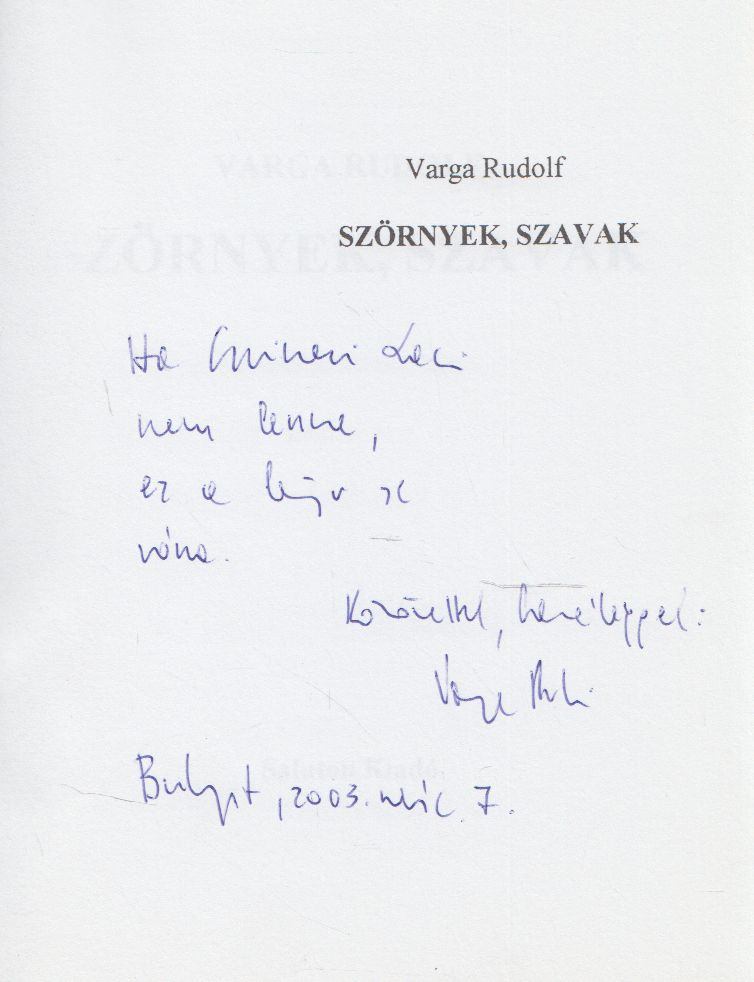 Varga Rudolf
SZÖRNYEK, SZAVAK
Ha Laci
nem lenne,
ez a könyv se
vóna.
Köszönettel, barátsággal:
Varga Rudi
Budapest, 2003. márc. 7.
Salutom Kiadó